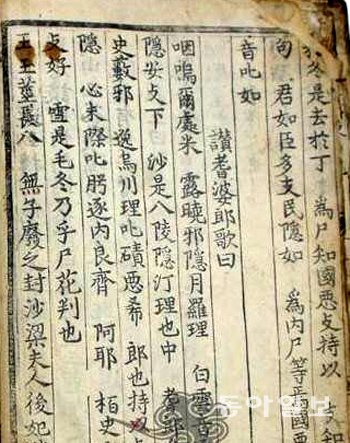 冬是去於丁 爲尸知國惡攴持以 知
句 君如臣多支民隱如 爲內尸等焉國惡
音叱如
讚耆婆郎歌曰
咽嗚爾處米 露曉邪隱月羅理 白雲音
隱安攴下 沙是八陵隱汀理也中 耆郎
史藪邪 逸烏川理叱磧惡希 郎也持以攴
隱 心未際叱肹逐內良齊 阿耶 栢史
攴好 雪是毛冬乃乎尸花判也
王玉莖長八 無子廢之封沙梁夫人後妃
동아일보